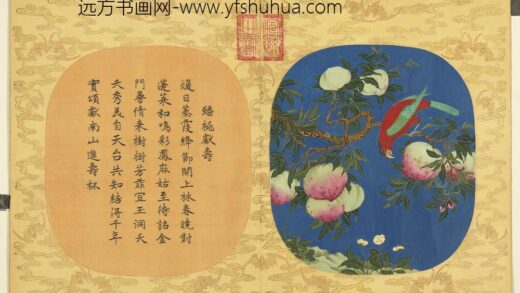 远方书画网-www.yfshuhua.com
蟠桃獻壽
煖日蒸霞絳節開上林春晚對
蓬萊和鳴彩鳳麻姑至待詔金
門曼倩來樹樹芳菲宜玉洞夭
夭秀美自天台共知結得千年
實頌獻南山進壽杯